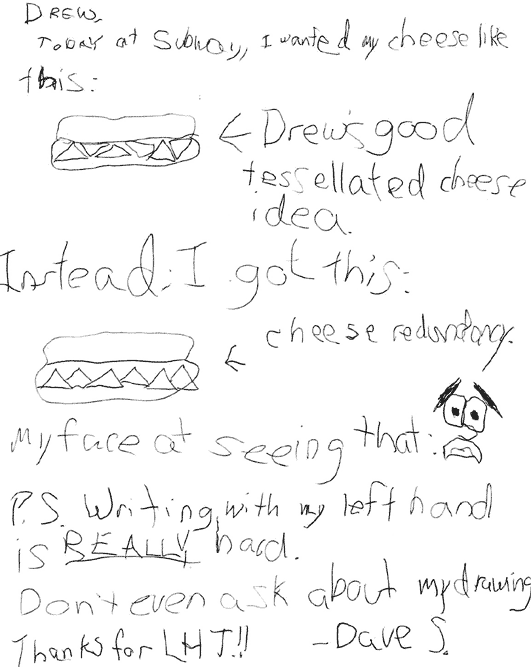 Drew,
Today at Subway, I wanted my cheese like
this:
← Drew's good
tessellated cheese
idea.
Instead, I got this:
← cheese redundancy.
My face at seeing that:
P.S. Writing with my left hand
is REALLY hard.
Don't even ask about my drawing
Thanks for LHT!! -Dave S.